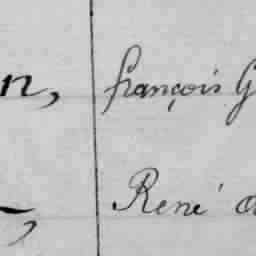 n, françois G
René